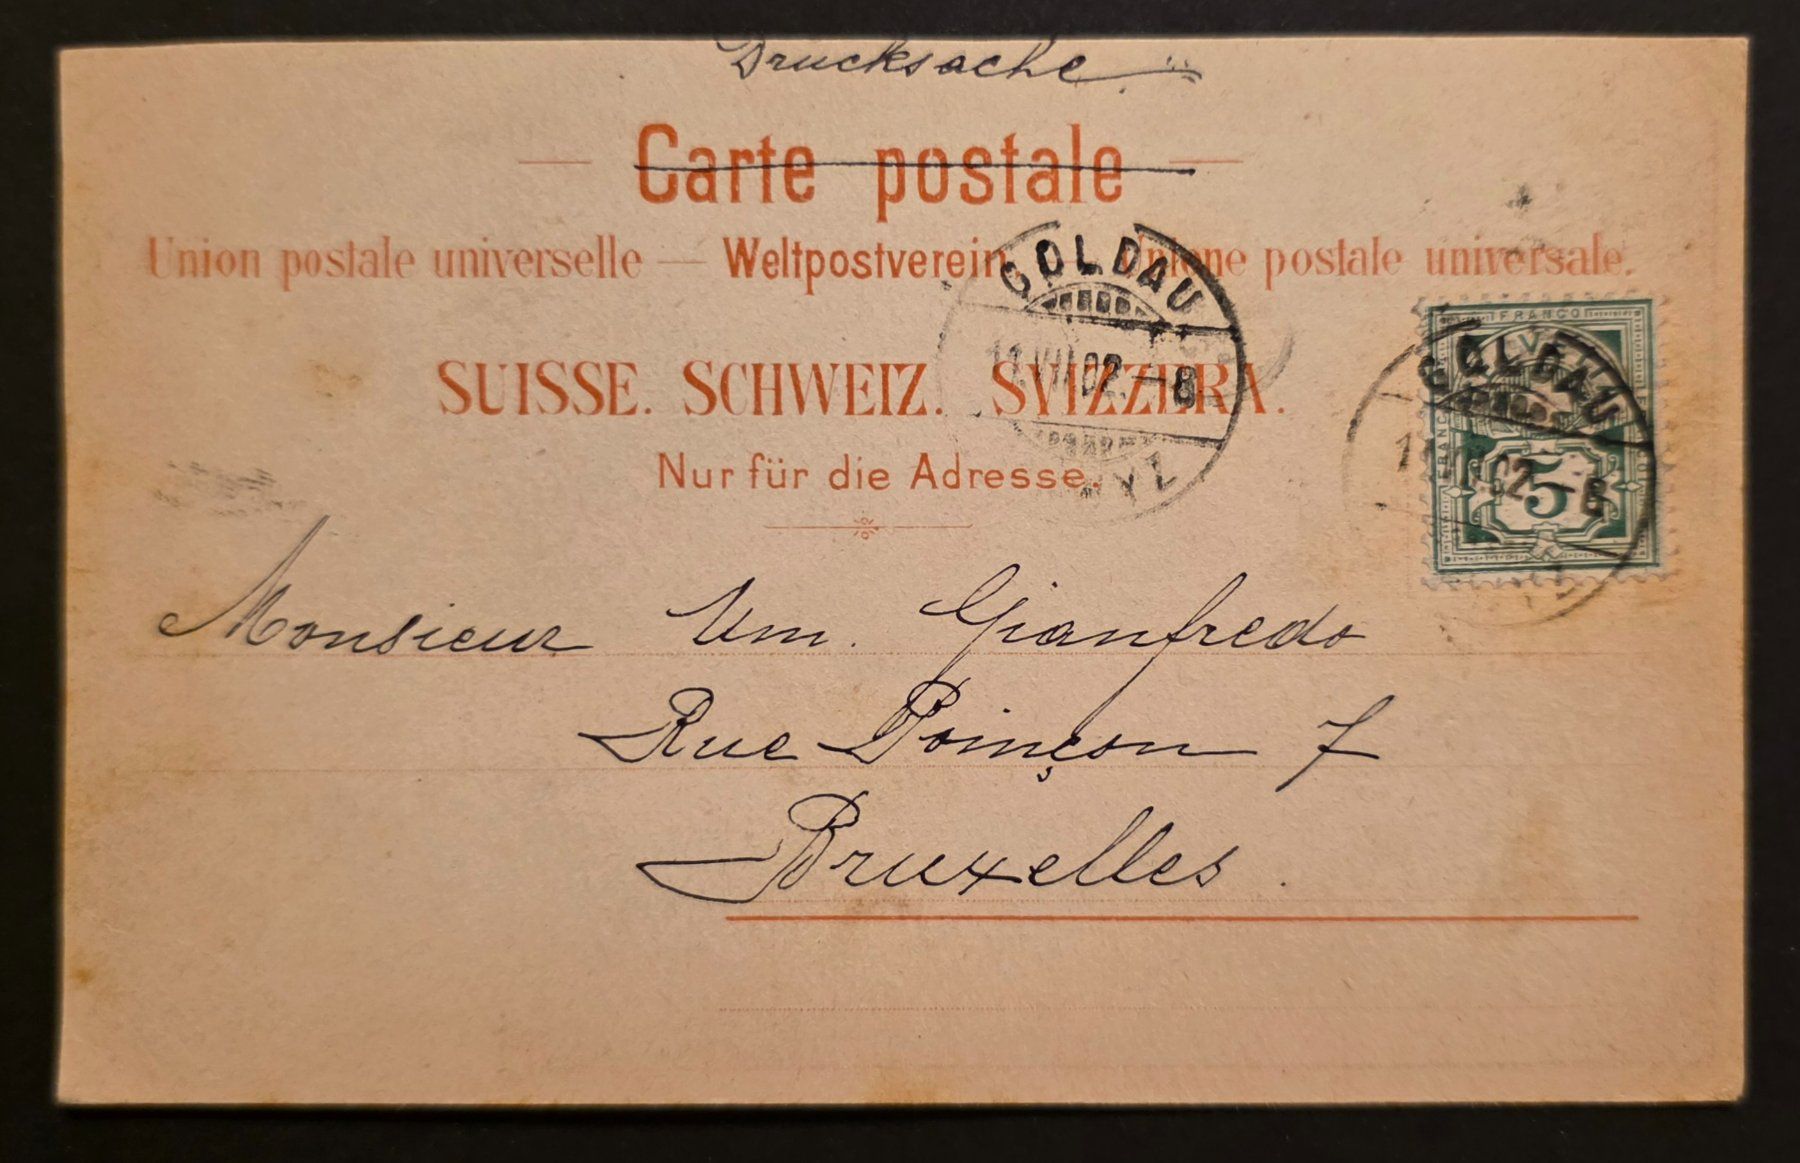 Drucksache
Carte postale
Union postale universelle — Weltpostverein Unione postale universale.
SUISSE. SCHWEIZ. SVIZZERA.
Nur für die Adresse.
GOLDAU
11.VII.02.–8
FRANCO
GOLDAU
02.–8
5
Monsieur Um. Gianfredo
Rue Poinçon 7
Bruxelles.